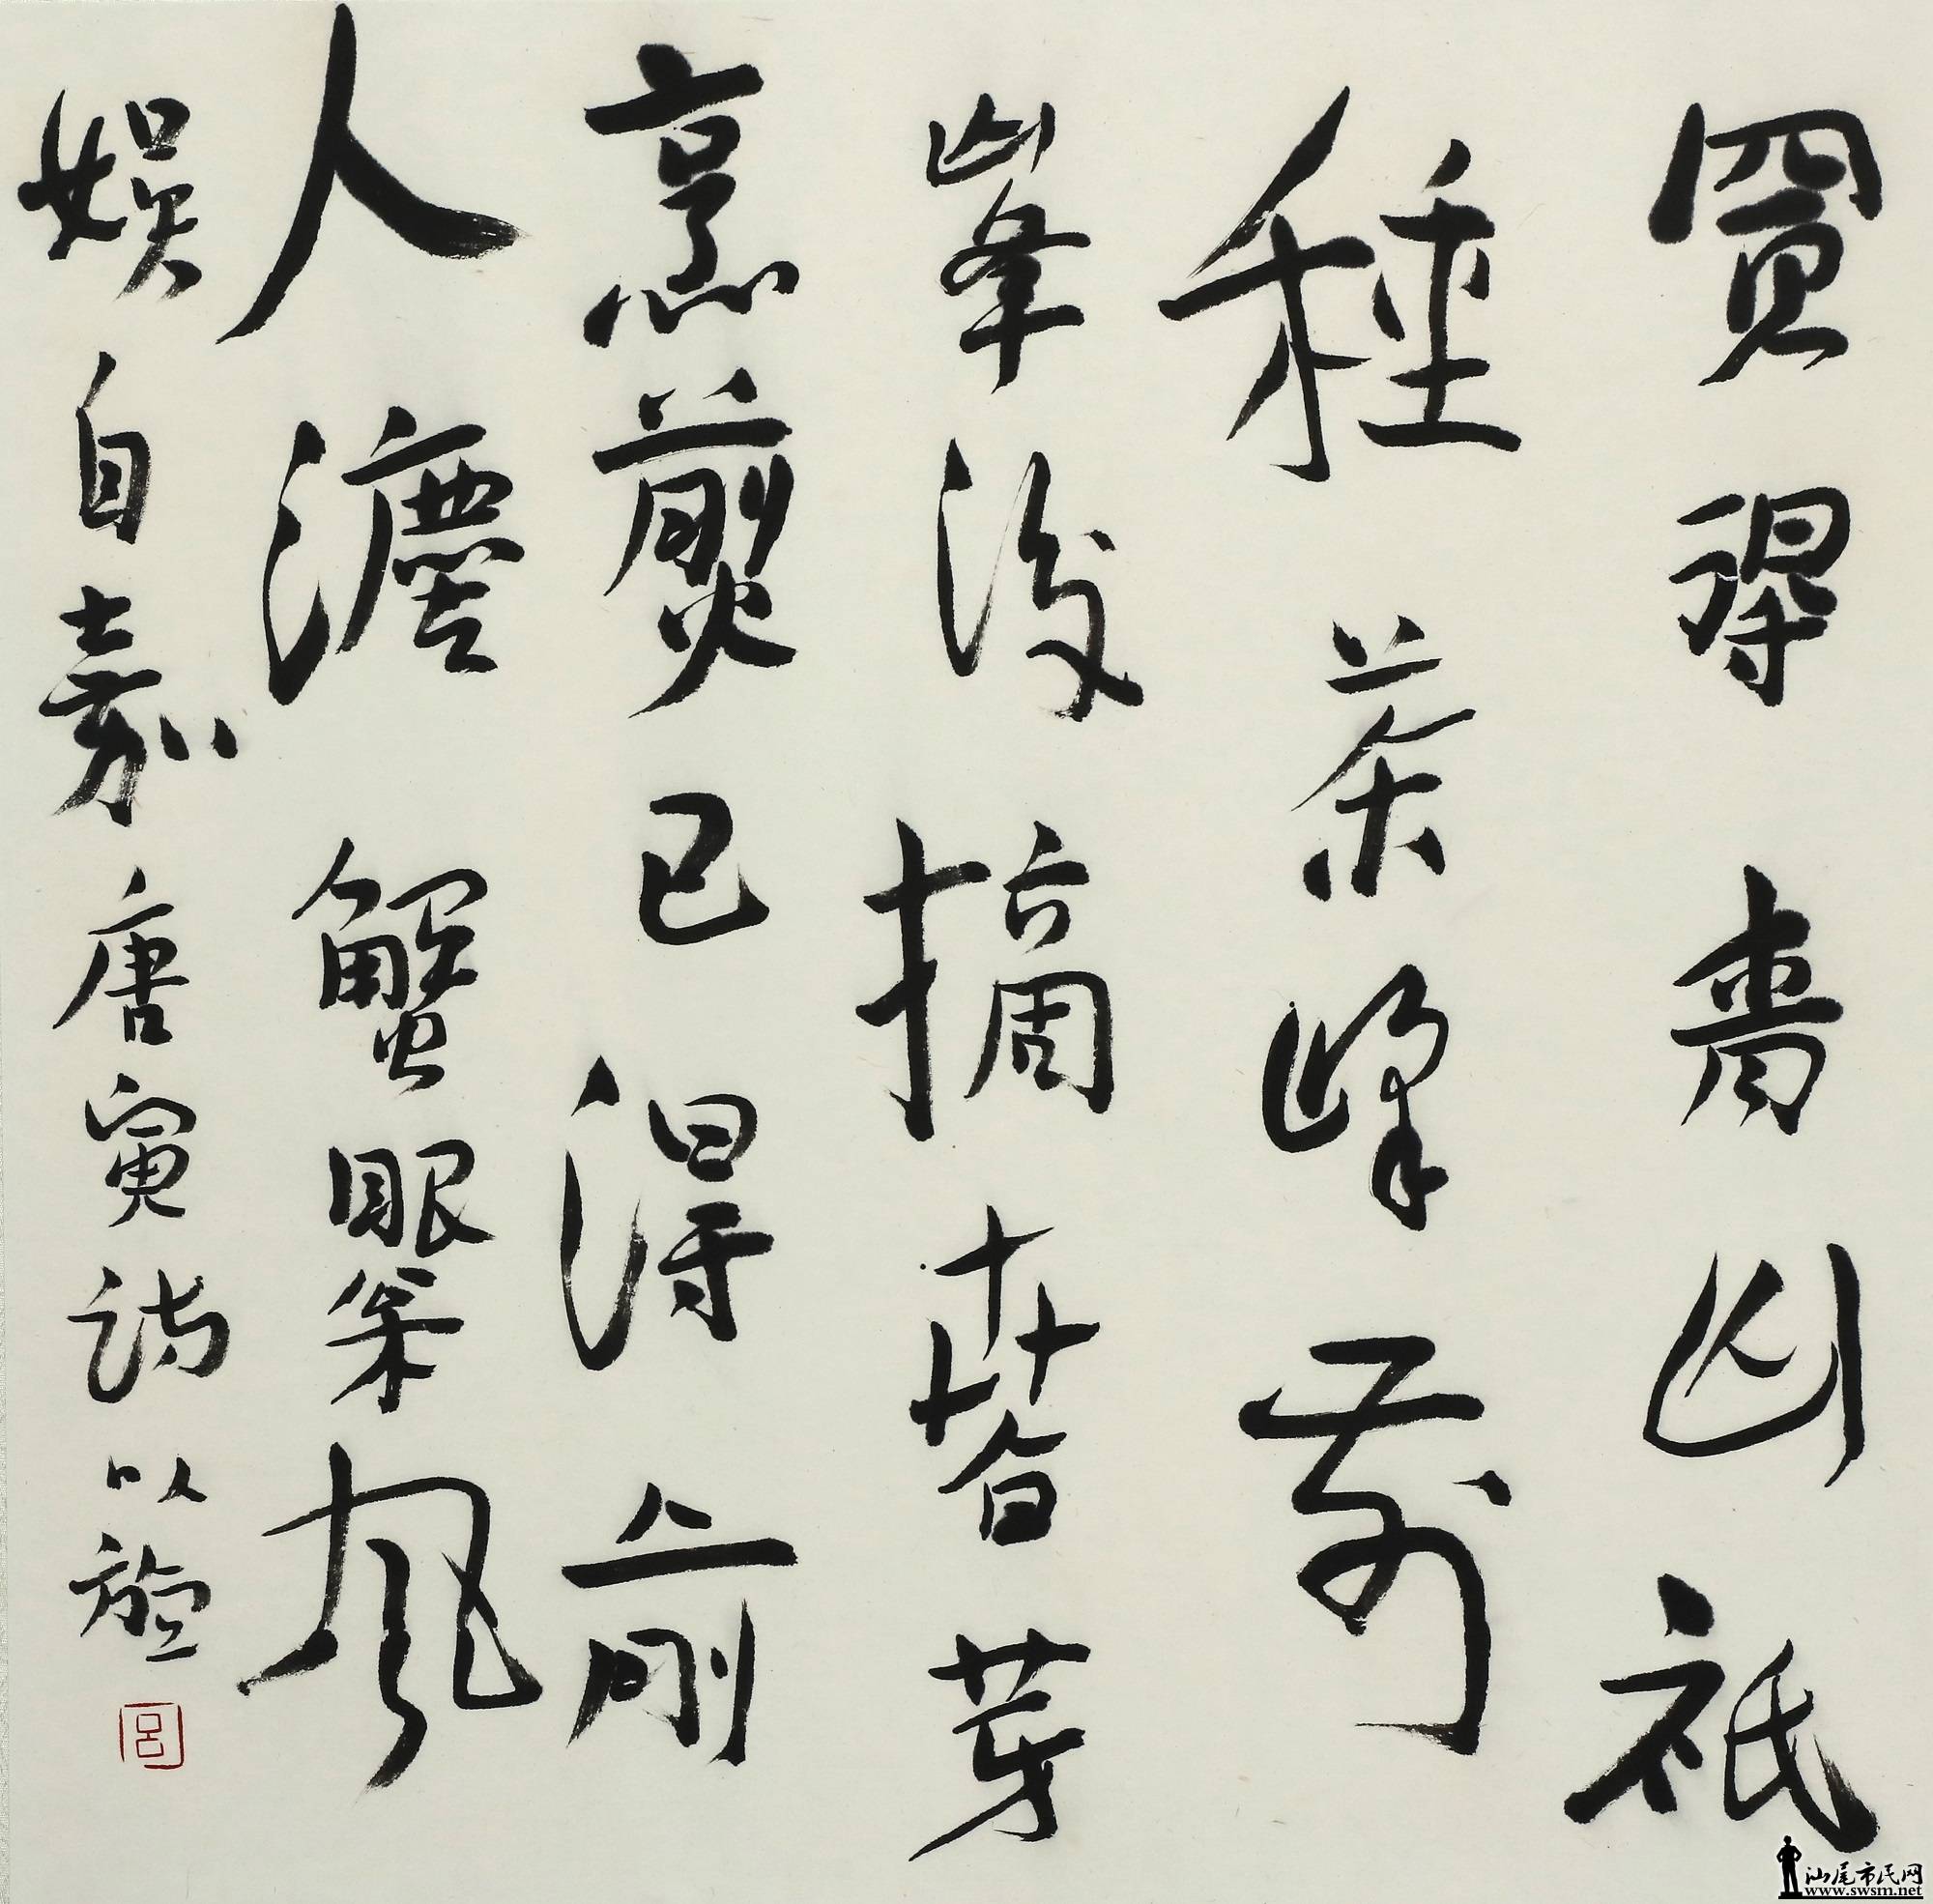 買得青山祗
種茶峰前
峯後摘春芽
烹煎已得前
人灋蟹眼松風
娱自嘉唐寅詩以
呂
汕尾市民网
www.swsm.net